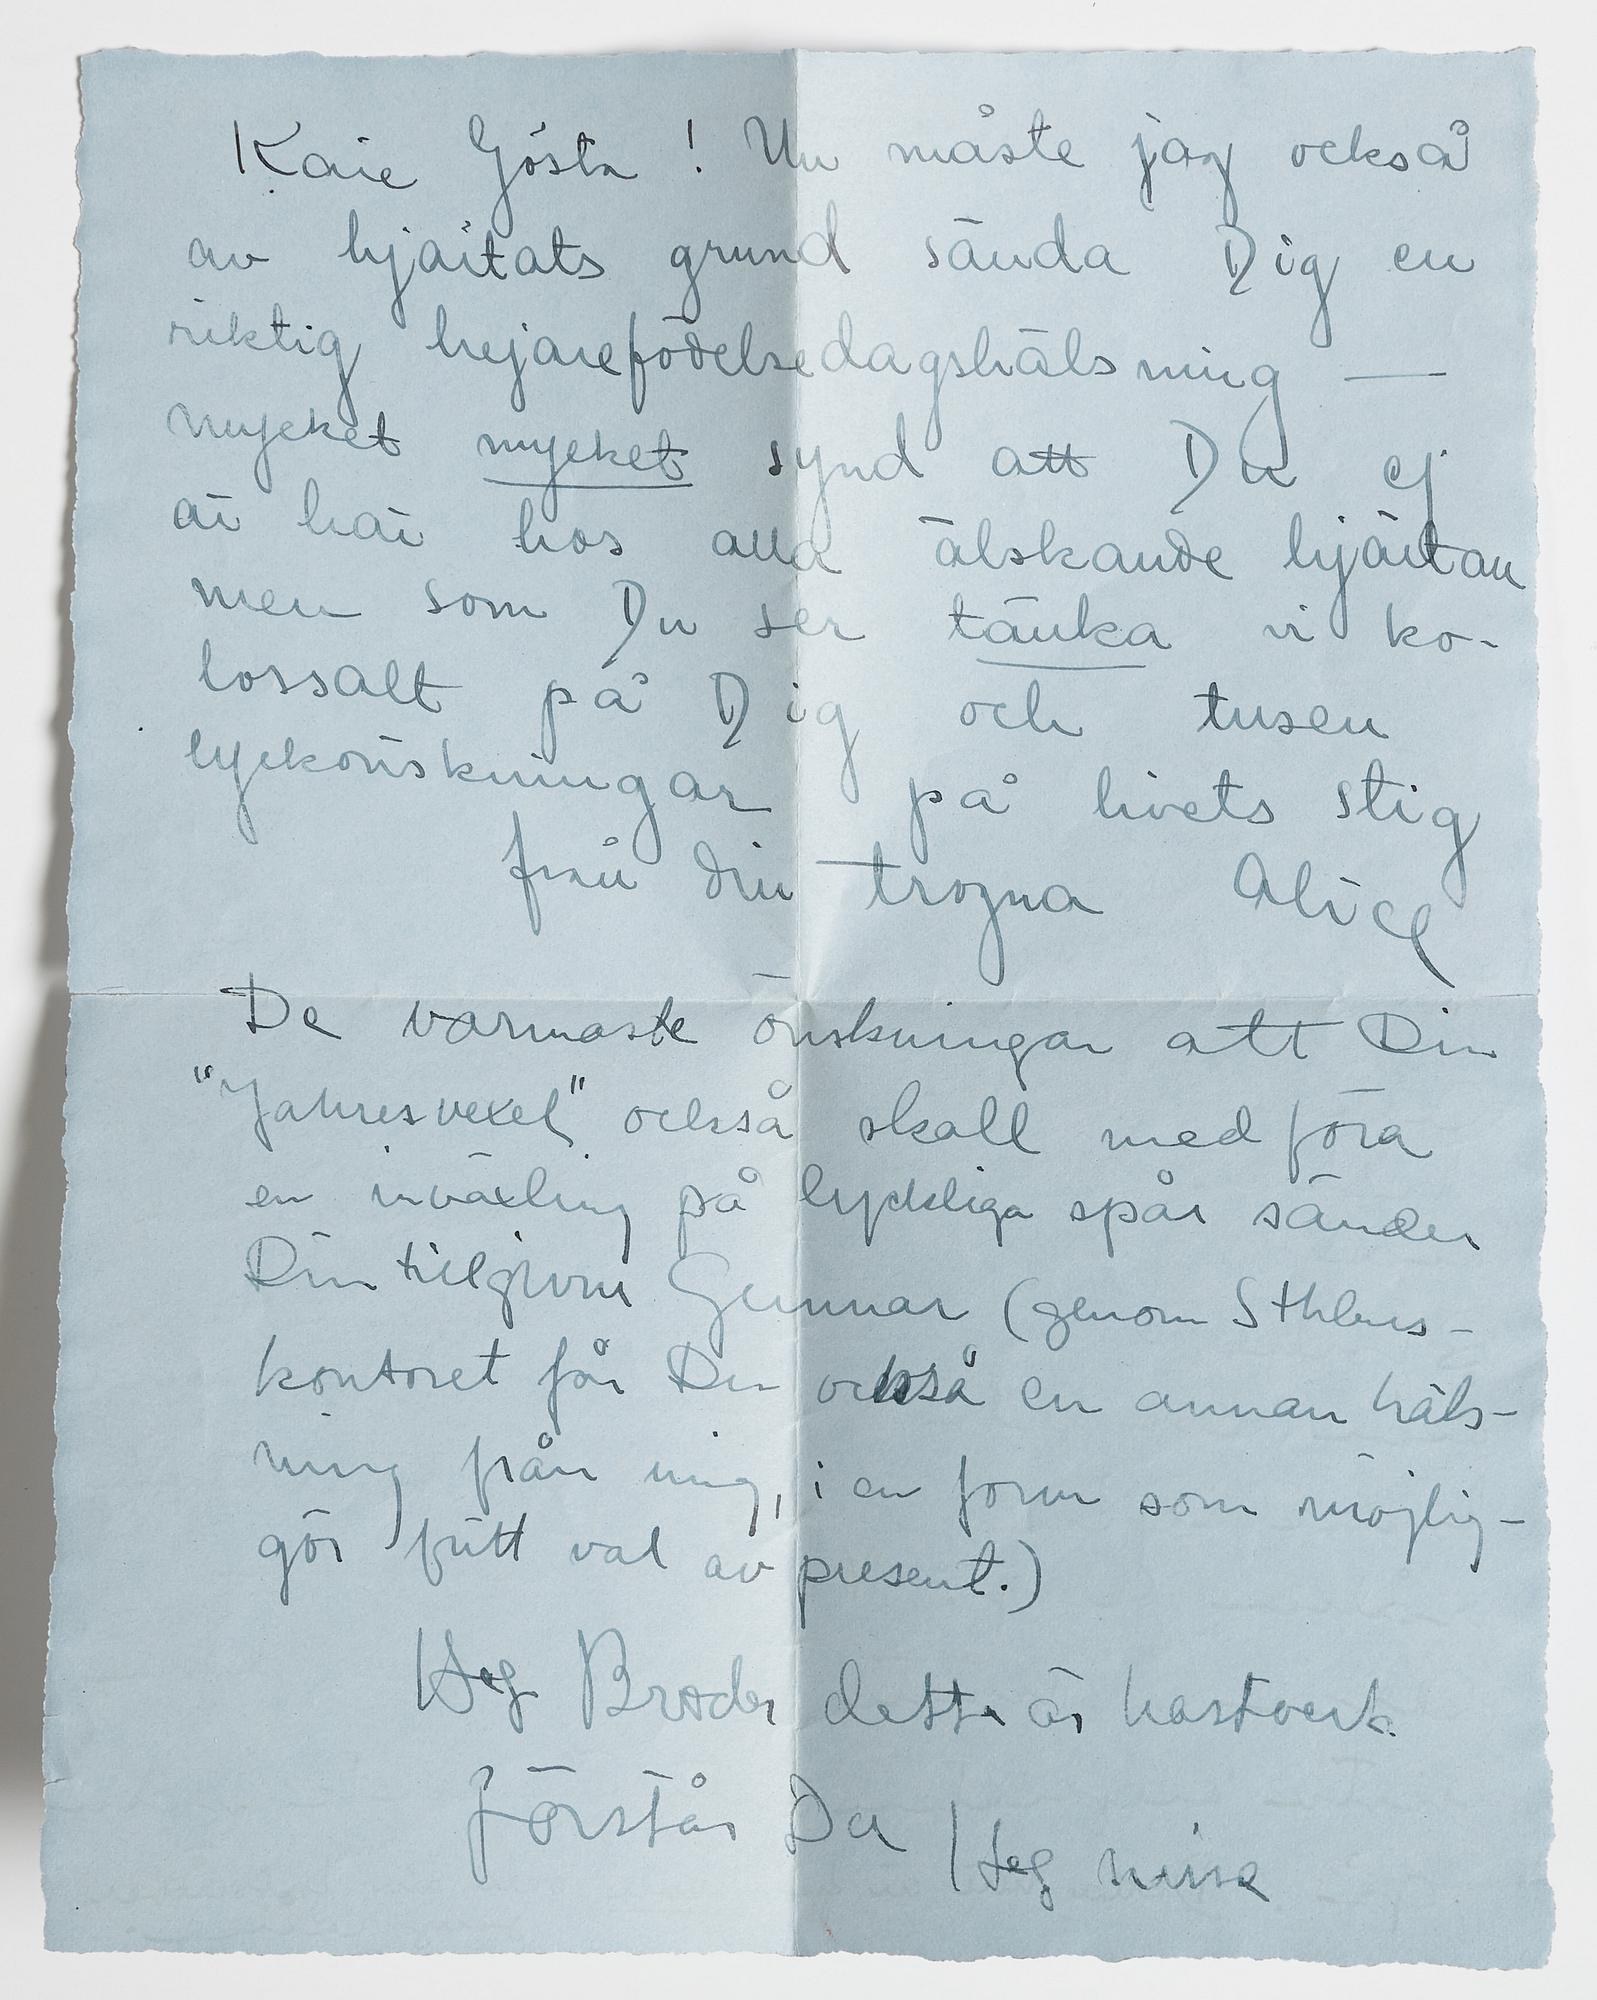 Käre Gösta! Nu måste jag också
av hjärtats grund sända Dig en
riktig hejarefödelsedagshälsning —
mycket mycket synd att Du ej
är här hos alla älskande hjärtan
men som Du ser tänka vi ko-
lossalt på Dig och tusen
lyckönskningar på livets stig
från din trogna Alice
De varmaste önskningar att Din
"Jahresvexel" också skall medföra
en inväxling på lyckliga spår sänder
Din tillgivne Gunnar (genom Sthlms-
kontoret får Du också en annan häls-
ning från mig, i en form som möjlig-
gör fritt val av present.)
Hej Broder detta är hastverk
förstår Du Hej